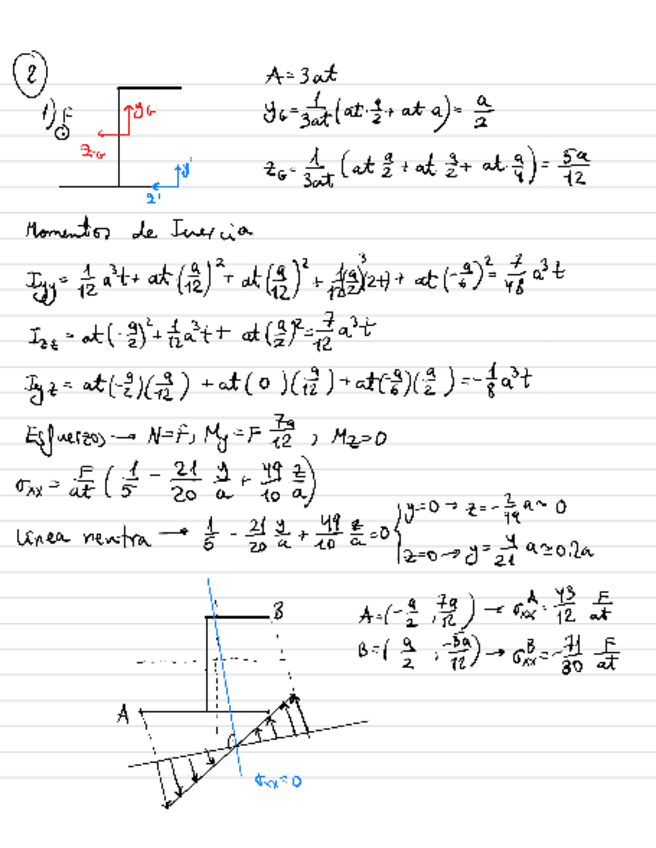 2
A = 3at
1) F
y_G
z_G
y'
z'
y_G = 1/3at (at·a/2 + at·a) = a/2
z_G = 1/3at (at a/2 + at a/2 + at·a/4) = 5a/12
Momentos de Inercia
I_yy = 1/12 a³t + at (a/12)² + at (a/12)² + 1/12 (a/2)³ (2t) + at (-a/6)² = 7/48 a³t
I_zz = at (-a/2)² + 1/12 a³t + at (a/2)² = 7/12 a³t
I_yz = at (-a/2)(a/12) + at (0)(a/12) + at (-a/6)(a/2) = -1/8 a³t
Esfuerzos → N=F, My = F 7a/12 , Mz=0
σxx = F/at (1/5 - 21/20 y/a + 49/10 z/a)
Línea neutra → 1/5 - 21/20 y/a + 49/10 z/a = 0 { y=0 → z = -2/49 a ≈ 0
z=0 → y = 4/21 a ≃ 0,2a
B
A
A = (-a/2 , 7a/12) → σxx^A = 43/12 F/at
B = (a/2 , -5a/12) → σxx^B = -71/30 F/at
σxx = 0